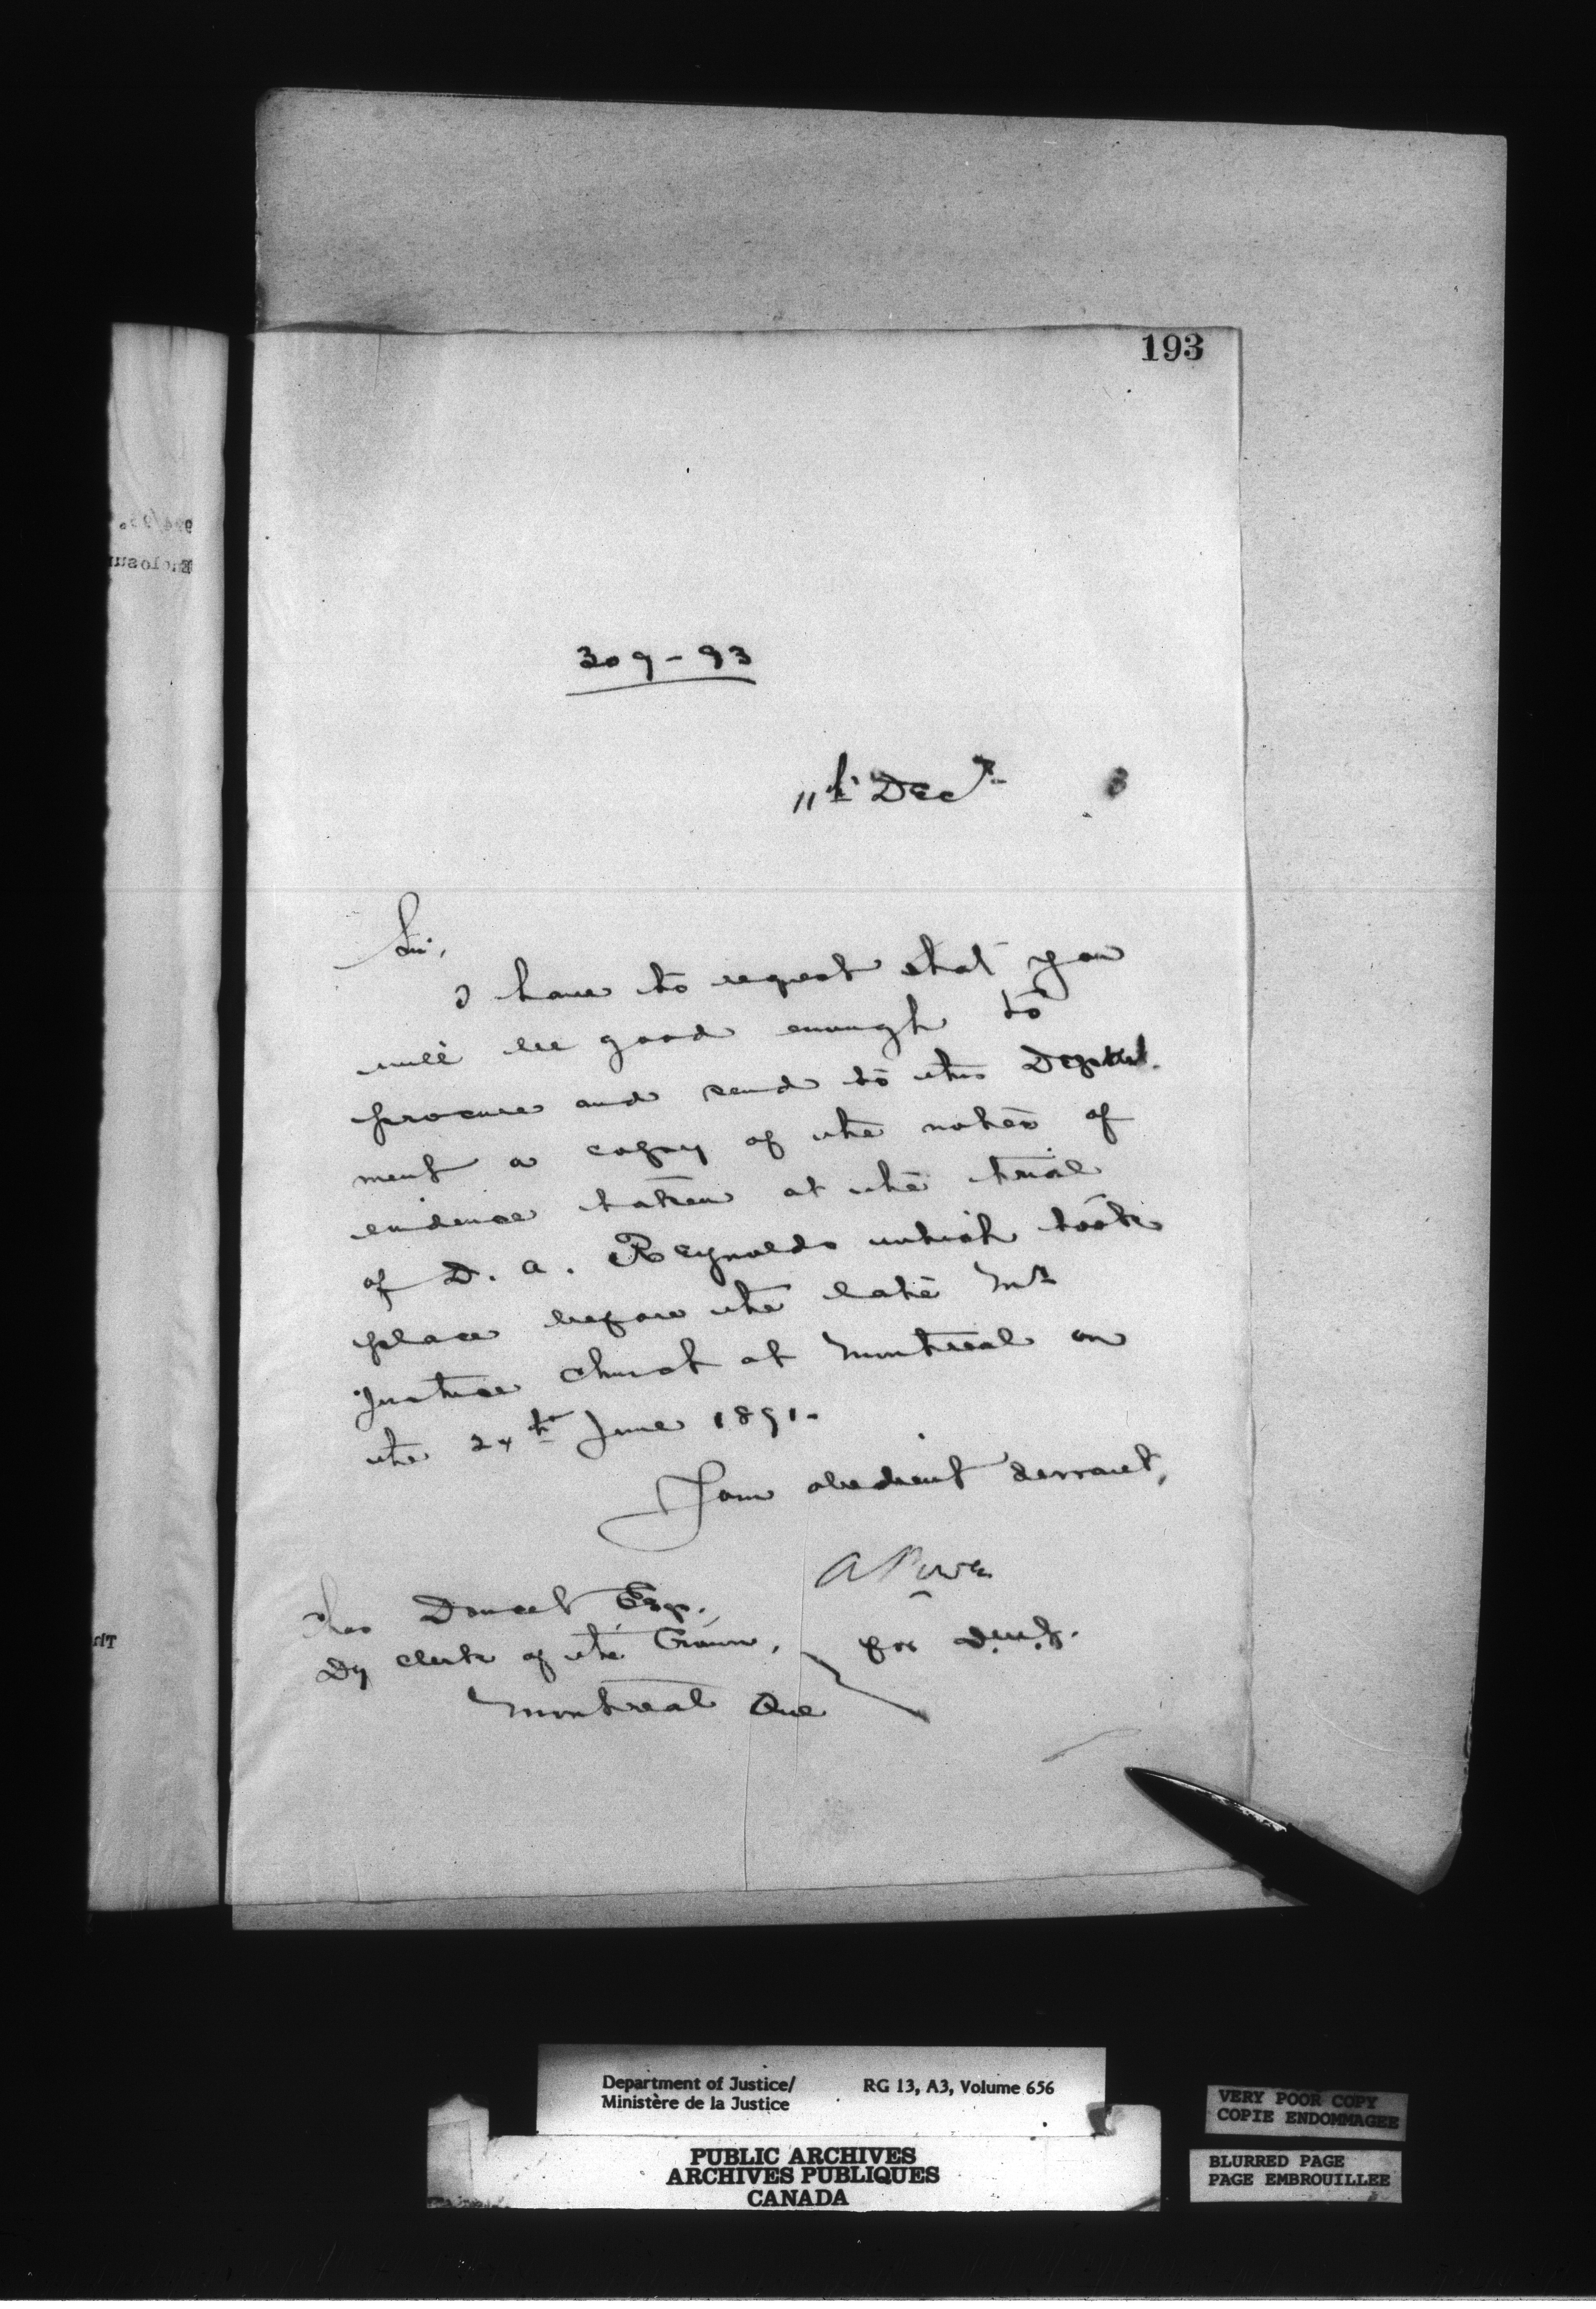 193
309-93
11th Decr 3
Sir,
I have to request that you
will be good enough to
procure and send to this Depart-
ment a copy of the notes of
evidence taken at the trial
of D. A. Reynolds which took
place before the late Mr
Justice Church at Montreal on
the 24th June 1891.
I am obedient servant,
A Power
for D.M.J.
Chas Doucet Esq.,
Dy Clerk of the Crown,
Montreal Que
Department of Justice/
Ministère de la Justice
RG 13, A3, Volume 656
PUBLIC ARCHIVES
ARCHIVES PUBLIQUES
CANADA
VERY POOR COPY
COPIE ENDOMMAGEE
BLURRED PAGE
PAGE EMBROUILLEE